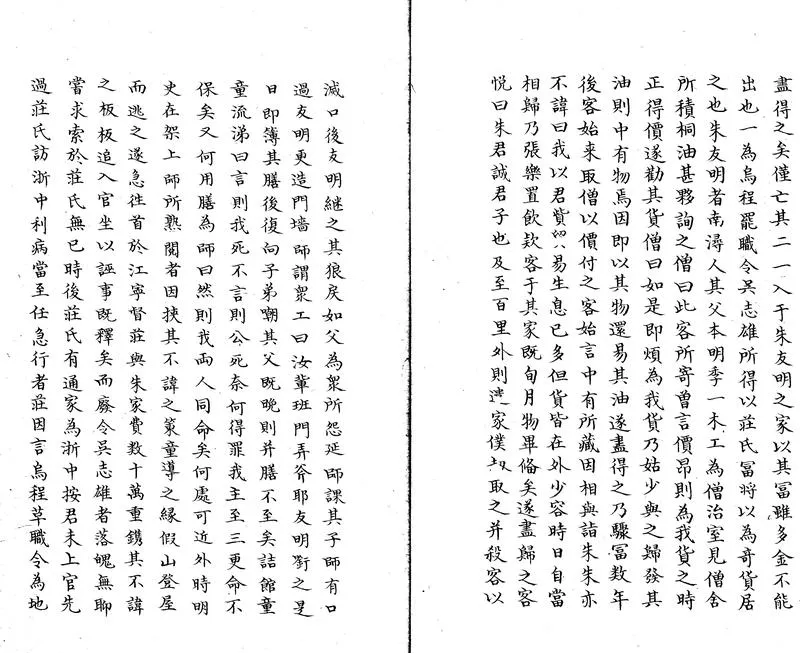 盡得之矣僅亡其二一入于朱友明之家以其冨雖多金不能
出也一為烏程罷職令吳志雄所得以莊氏冨將以為奇貨居
之也朱友明者南潯人其父本明季一木工為僧治室見僧舍
所積桐油甚夥詢之僧曰此客所寄曾言價昂則為我貨之時
正得價遂勸其貨僧曰如是即煩為我貨乃姑少與之歸發其
油則中有物焉因即以其物還易其油遂盡得之乃驟冨数年
後客始来取僧以價付之客始言中有所藏因相與詣朱朱亦
不諱曰我以君貲易生息已多但貨皆在外少容時日自當
相歸乃張樂置飲款客于其家既旬月物畢俻矣遂盡歸之客
悦曰朱君誠君子也及至百里外則遣家僕刼取之并殺客以
滅口後友明継之其狼戾如父為衆所怨延師課其子師有口
過友明更造門墻師謂衆工曰汝輩班門弄斧耶友明衘之是
日即簿其膳後復向子弟嘲其父既晚則并膳不至矣詰館童
童流涕曰言則我死不言則公死奈何得罪我主至三更命不
保矣又何用膳為師曰然則我両人同命矣何處可近外時明
史在架上師所熟閲者因挾其不諱之䇿童導之縁假山登屋
而逃之遂急徃首於江寧督莊與朱家費数十萬重鐫其不諱
之板板追入官坐以誣事既釋矣而廢令吳志雄者落魄無聊
嘗求索於莊氏無已時後莊氏有通家為浙中按君未上官先
過莊氏訪浙中利病當至任急行者莊因言烏程草職令為地